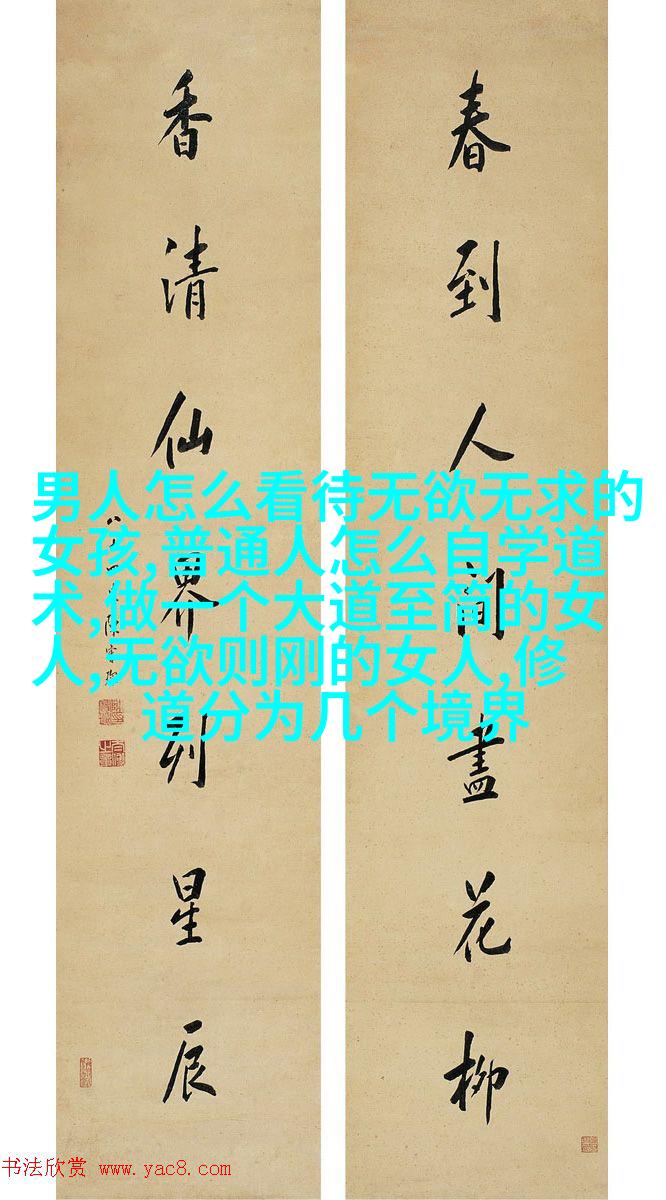 春到人间盡花柳
香清仙界列星辰
男人怎么看待无欲无求的
女孩,普通人怎么自学道
术,做一个大道至简的女
人,无欲则刚的女人,修
道分为几个境界
书法欣赏 www.yac8.com